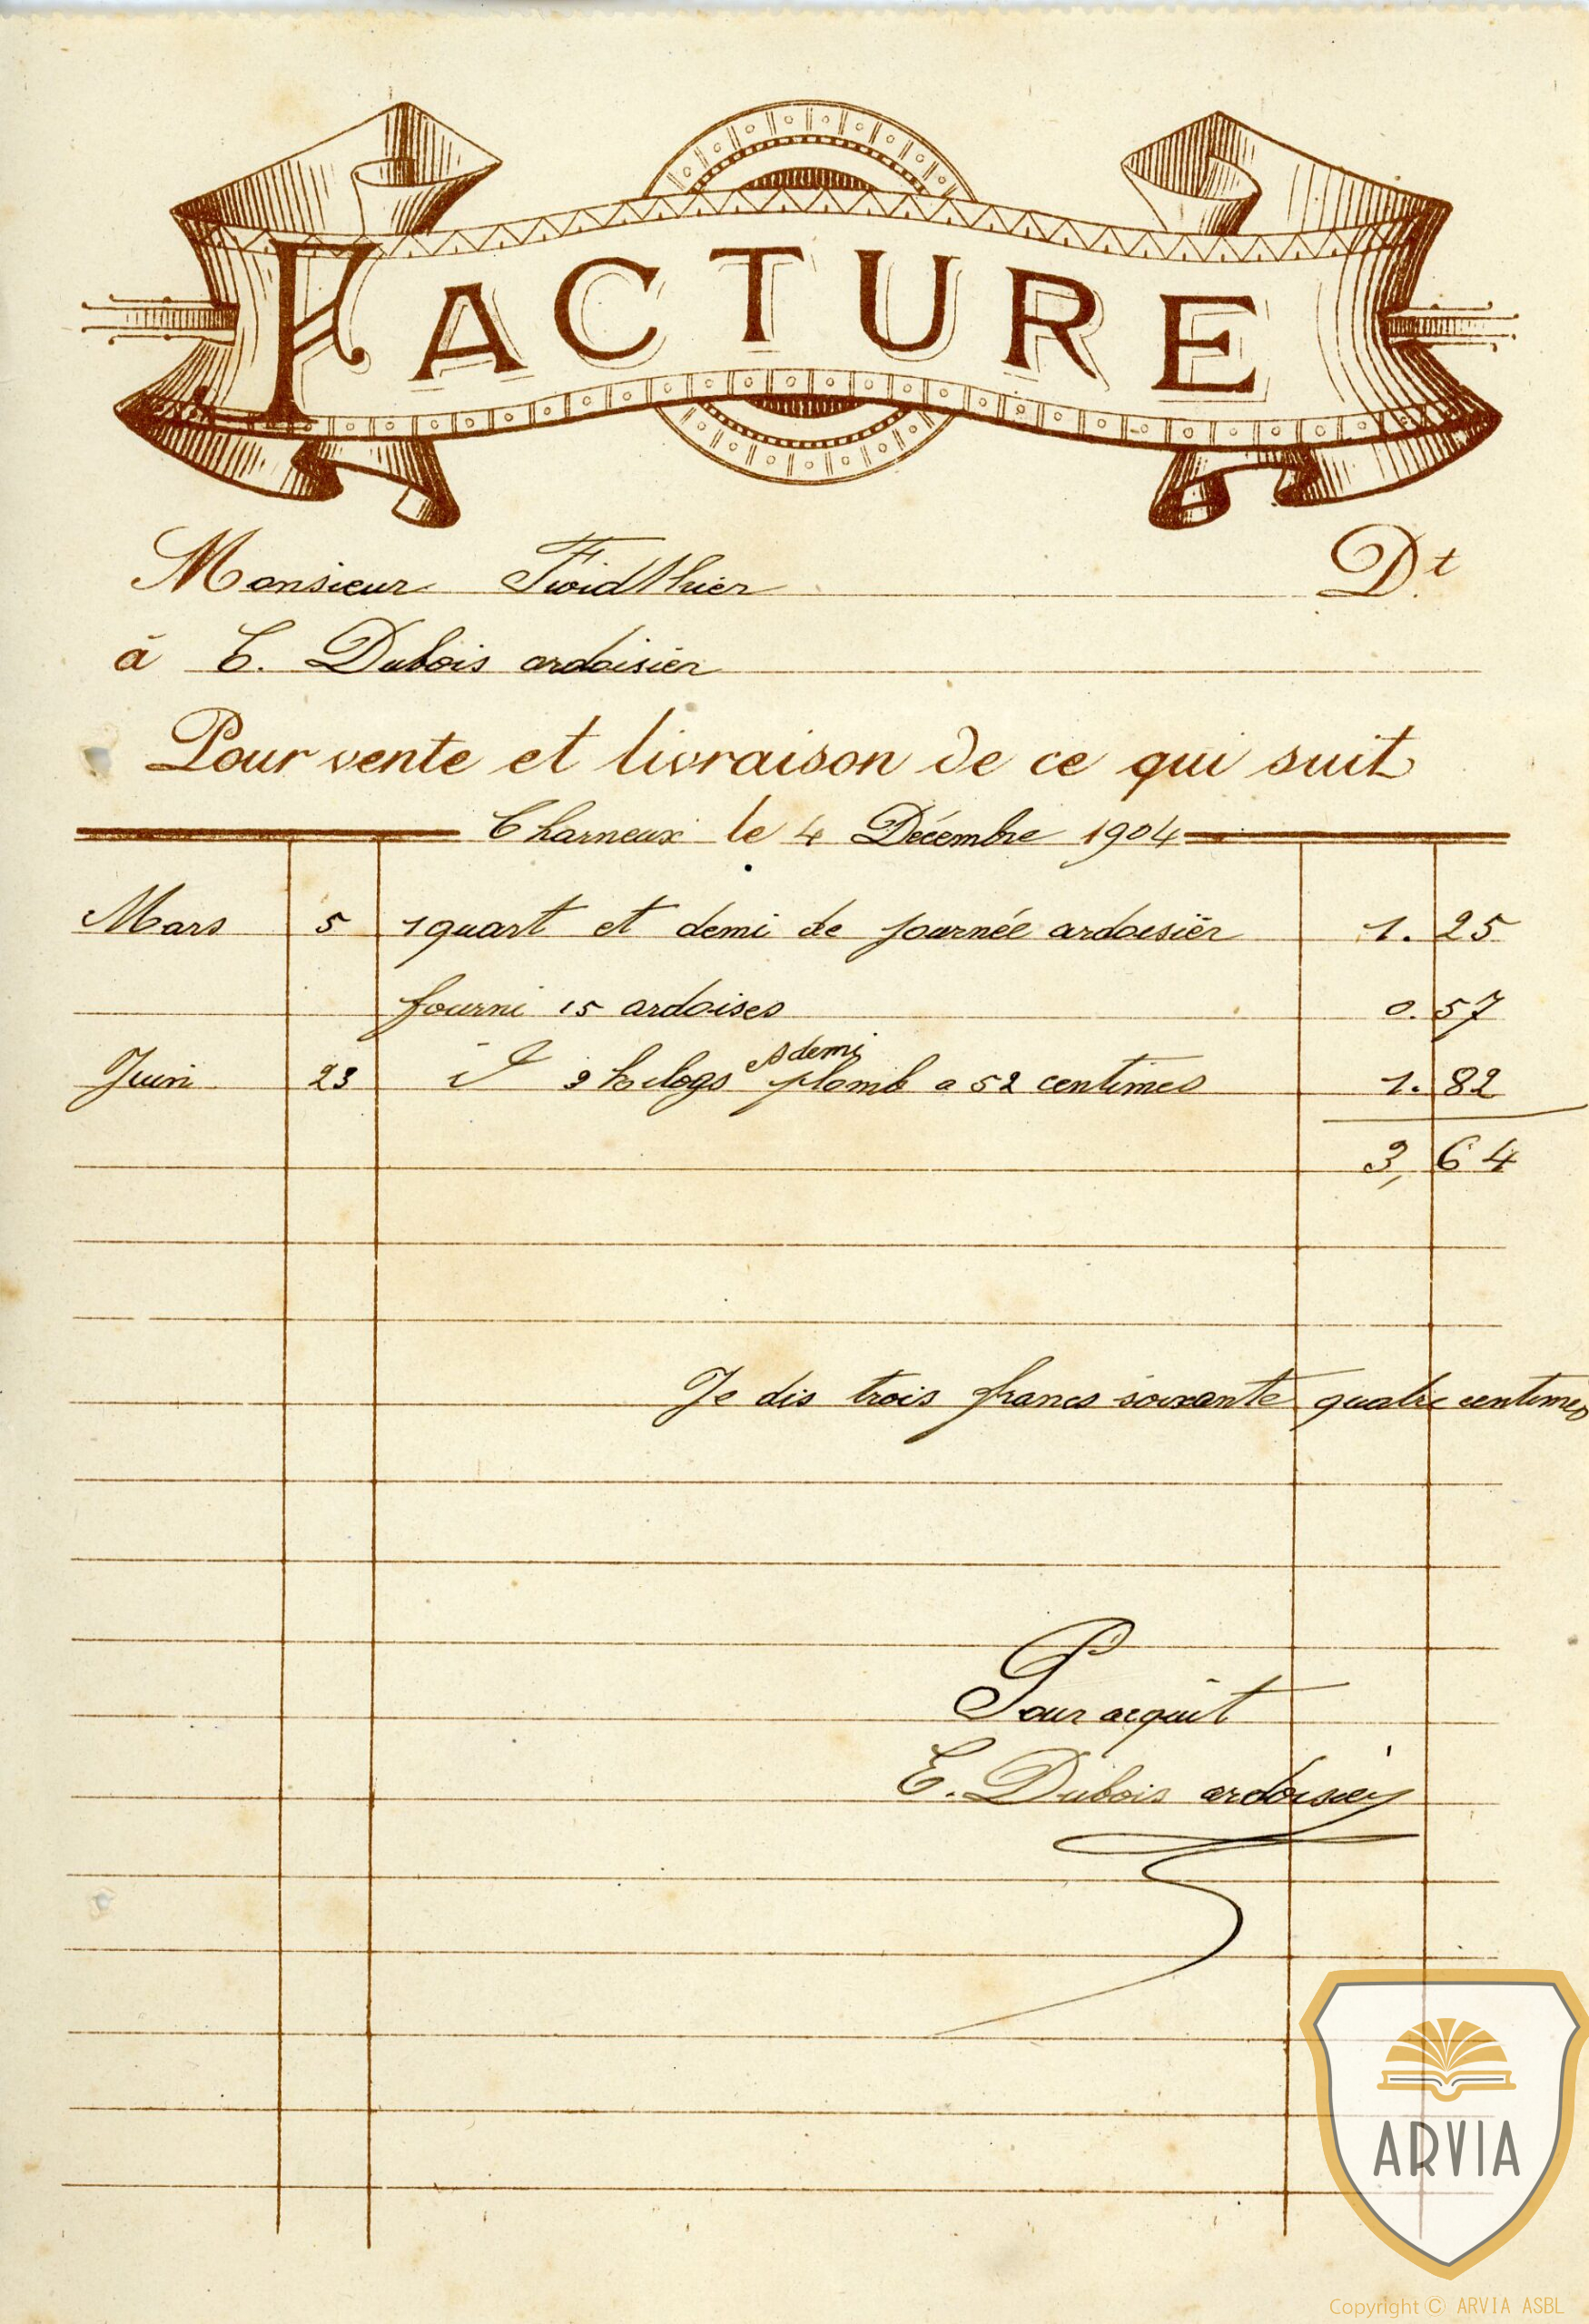 FACTURE
Monsieur Froidthier Dt
à E. Dubois ardoisier
Pour vente et livraison de ce qui suit
Charneux le 4 Décembre 1904
Mars 5 1 quart et demi de journée ardoisier 1. 25
fourni 15 ardoises 0. 57
et demi
Juin 23 3 kilogs plomb a 52 centimes 1. 82
3, 64
Je dis trois francs soixante quatre centimes
Pour acquit
E. Dubois ardoisier
ARVIA
Copyright © ARVIA ASBL